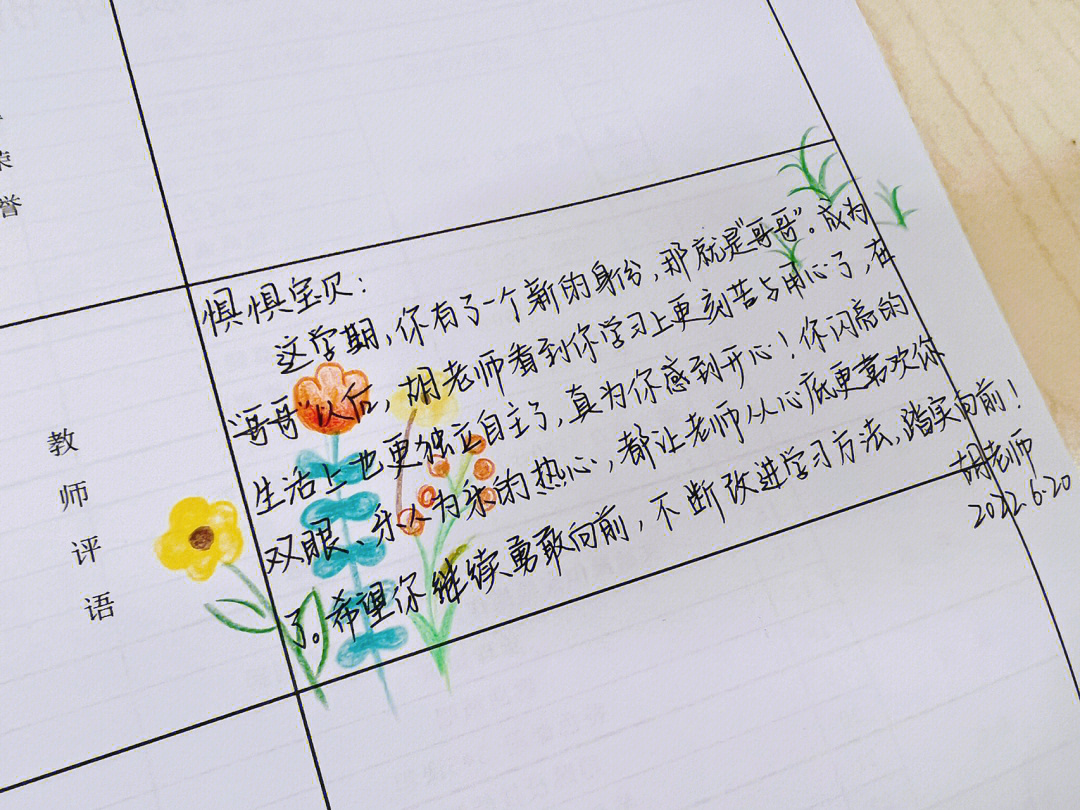 荣
誉
教
师
评
语
惧惧宝贝：
这学期，你有了一个新的身份，那就是“哥哥”。成为
“哥哥”以后，胡老师看到你学习上更刻苦与用心了，在
生活上也更独立自主了，真为你感到开心！你闪亮的
双眼、乐人为乐的热心，都让老师从心底更喜欢你
了。希望你继续勇敢向前，不断改进学习方法，踏实向前！
胡老师
2022.6.20